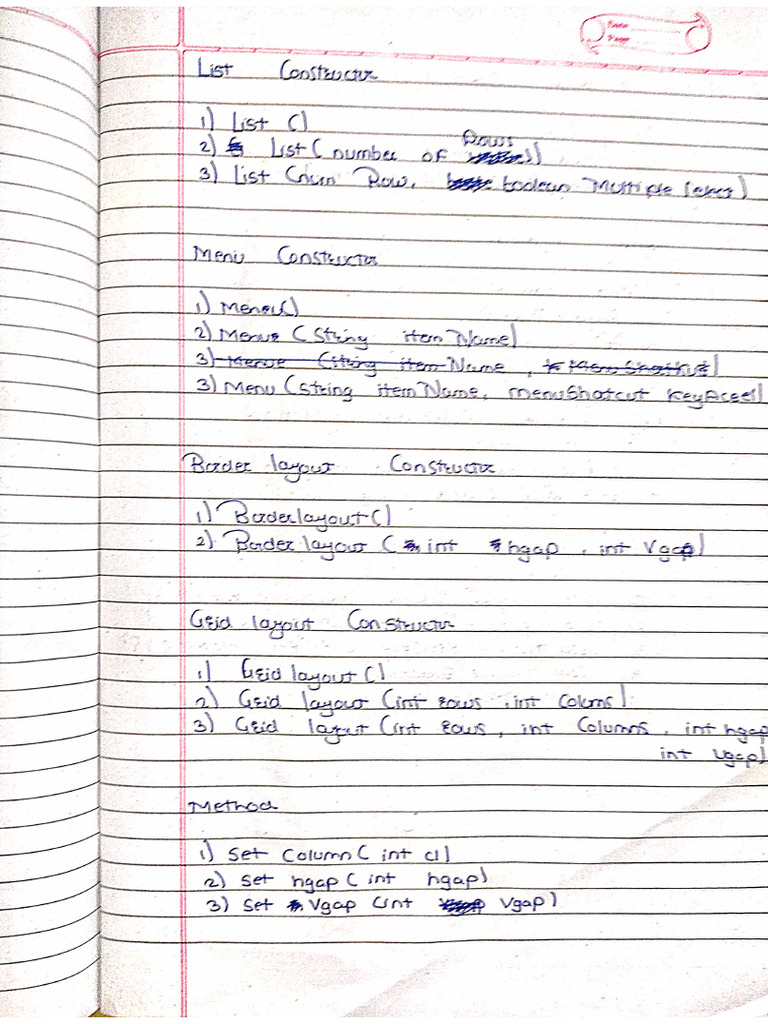 List Constructor
1) List ()
2) List ( number of Rows)
3) List (num Row, boolean Multiple
Menu Constructor
1) Menu()
2) Menu (String item Name)
3) Menu (String item Name,
3) Menu (string item Name, menu Shotcut key
Border layout Constructor
1) Borderlayout ()
2) Border layout ( int hgap , int Vgap)
Grid layout Constructor
1) Grid layout ()
2) Grid layout (int rows , int Colums)
3) Grid layout (int rows , int Columns , int hgap
int Vgap)
Method
1) Set Column ( int c1)
2) Set hgap ( int hgap)
3) Set Vgap (int Vgap)